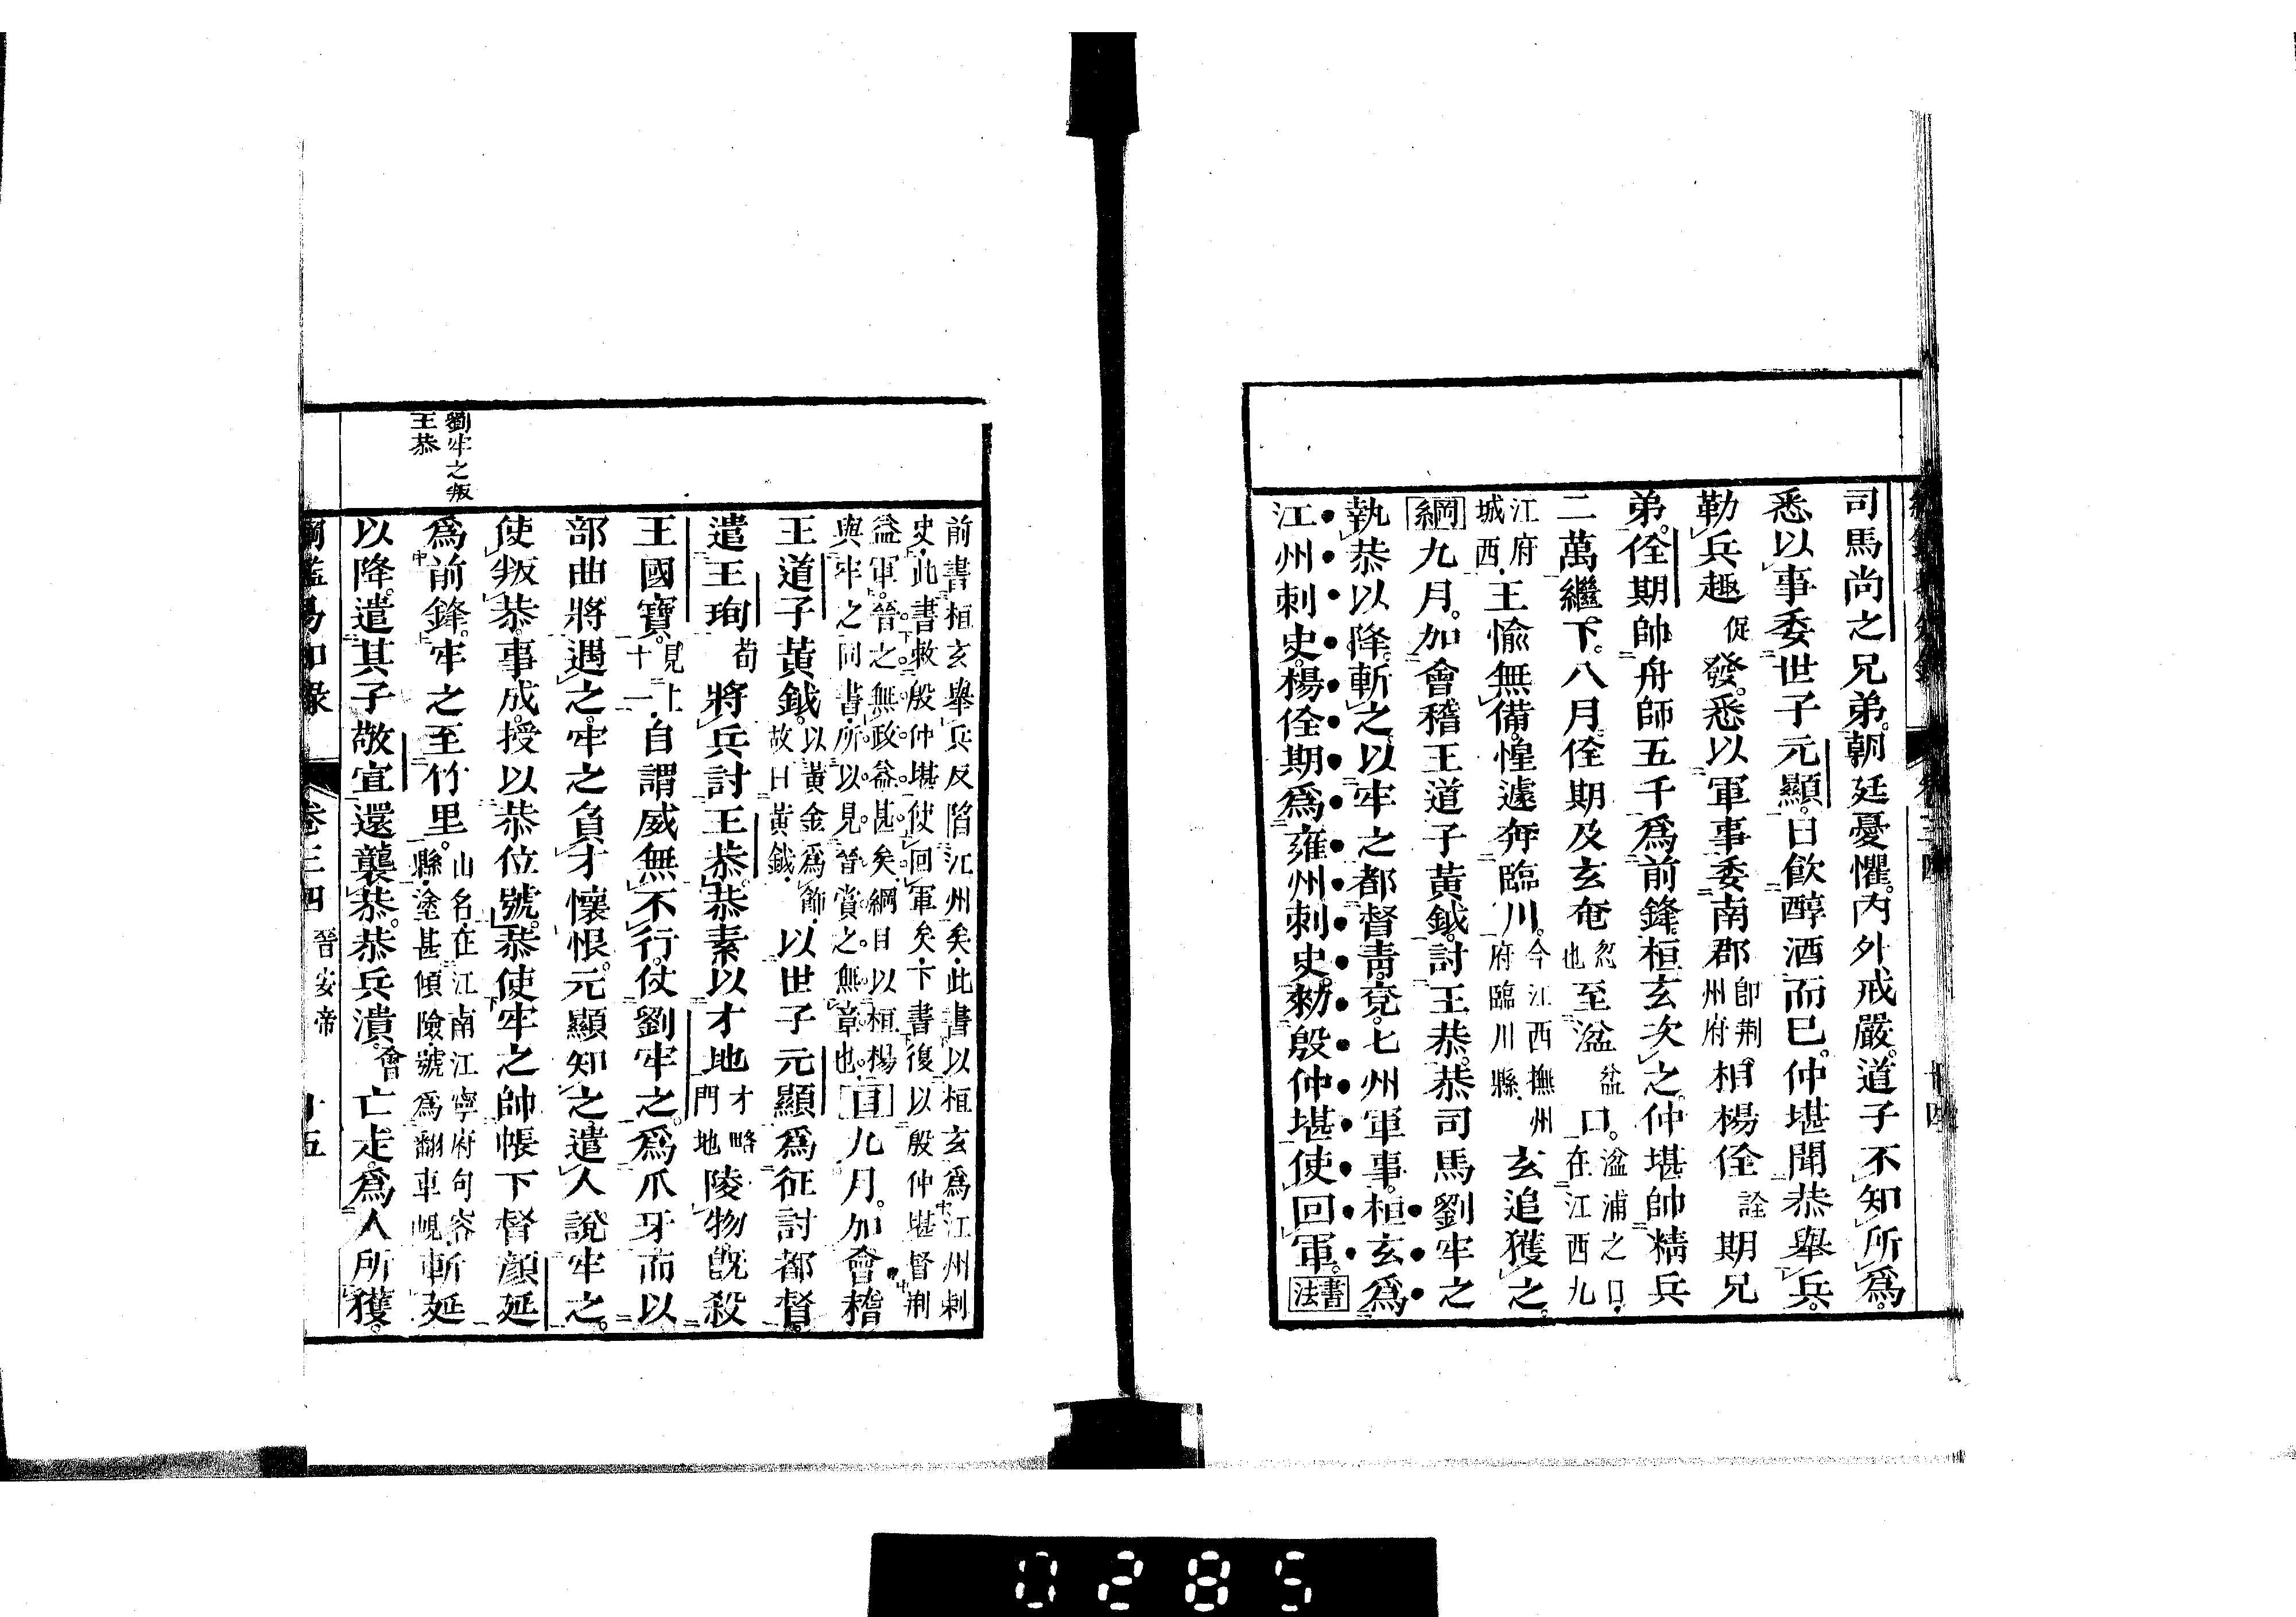 司馬尚之兄弟。朝廷憂懼。內外戒嚴。道子不知所爲。
悉以事委世子元顯。日飲醇酒而已。仲堪聞恭舉兵。
勒兵趣促發。悉以軍事委南郡即荆州府相楊佺詮期兄
弟。佺期帥舟師五千爲前鋒。桓玄次之。仲堪帥精兵
二萬繼下。八月。佺期及玄奄忽也至湓盆口。湓浦之口。在江西九
江府城西。王愉無備。惶遽奔臨川。今江西撫州府臨川縣。玄追獲之。
綱九月。加會稽王道子黃鉞。討王恭。恭司馬劉牢之
執恭以降。斬之。以牢之都督靑兗七州軍事。桓玄爲
江州刺史。楊佺期爲雍州刺史。勑殷仲堪使回軍。書法
前書桓玄舉兵反陷江州矣。此書以桓玄爲江州刺
史。此書敕殷仲堪使回軍矣。下書復以殷仲堪督荆
益軍。晉之無政益甚矣。綱目以桓楊
與牢之同書。所以見晉賞之無章也。目九月。加會稽
王道子黃鉞。以黃金爲飾。故曰黃鉞。以世子元顯爲征討都督。
遣王珣荀將兵討王恭。恭素以才地才略門地陵物。既殺
王國寶。見上十一。自謂威無不行。仗劉牢之。爲爪牙而以
部曲將遇之。牢之負才懷恨。元顯知之。遣人說牢之。
使叛恭。事成。授以恭位號。恭使牢之帥帳下督顏延
爲前鋒。牢之至竹里。山名。在江南江寧府句容縣。塗甚傾險。號爲翻車峴。斬延
以降。遣其子敬宣還襲恭。恭兵潰。會亡走。爲人所獲。
劉牢之叛
王恭
卷三四 晉安帝 十五
0285